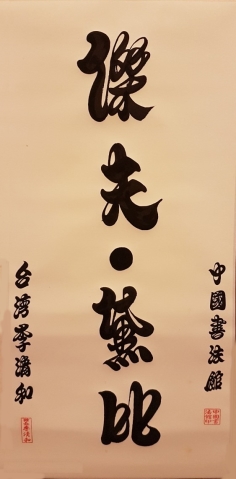 傑夫·黛比
中國書法館
台湾李清和